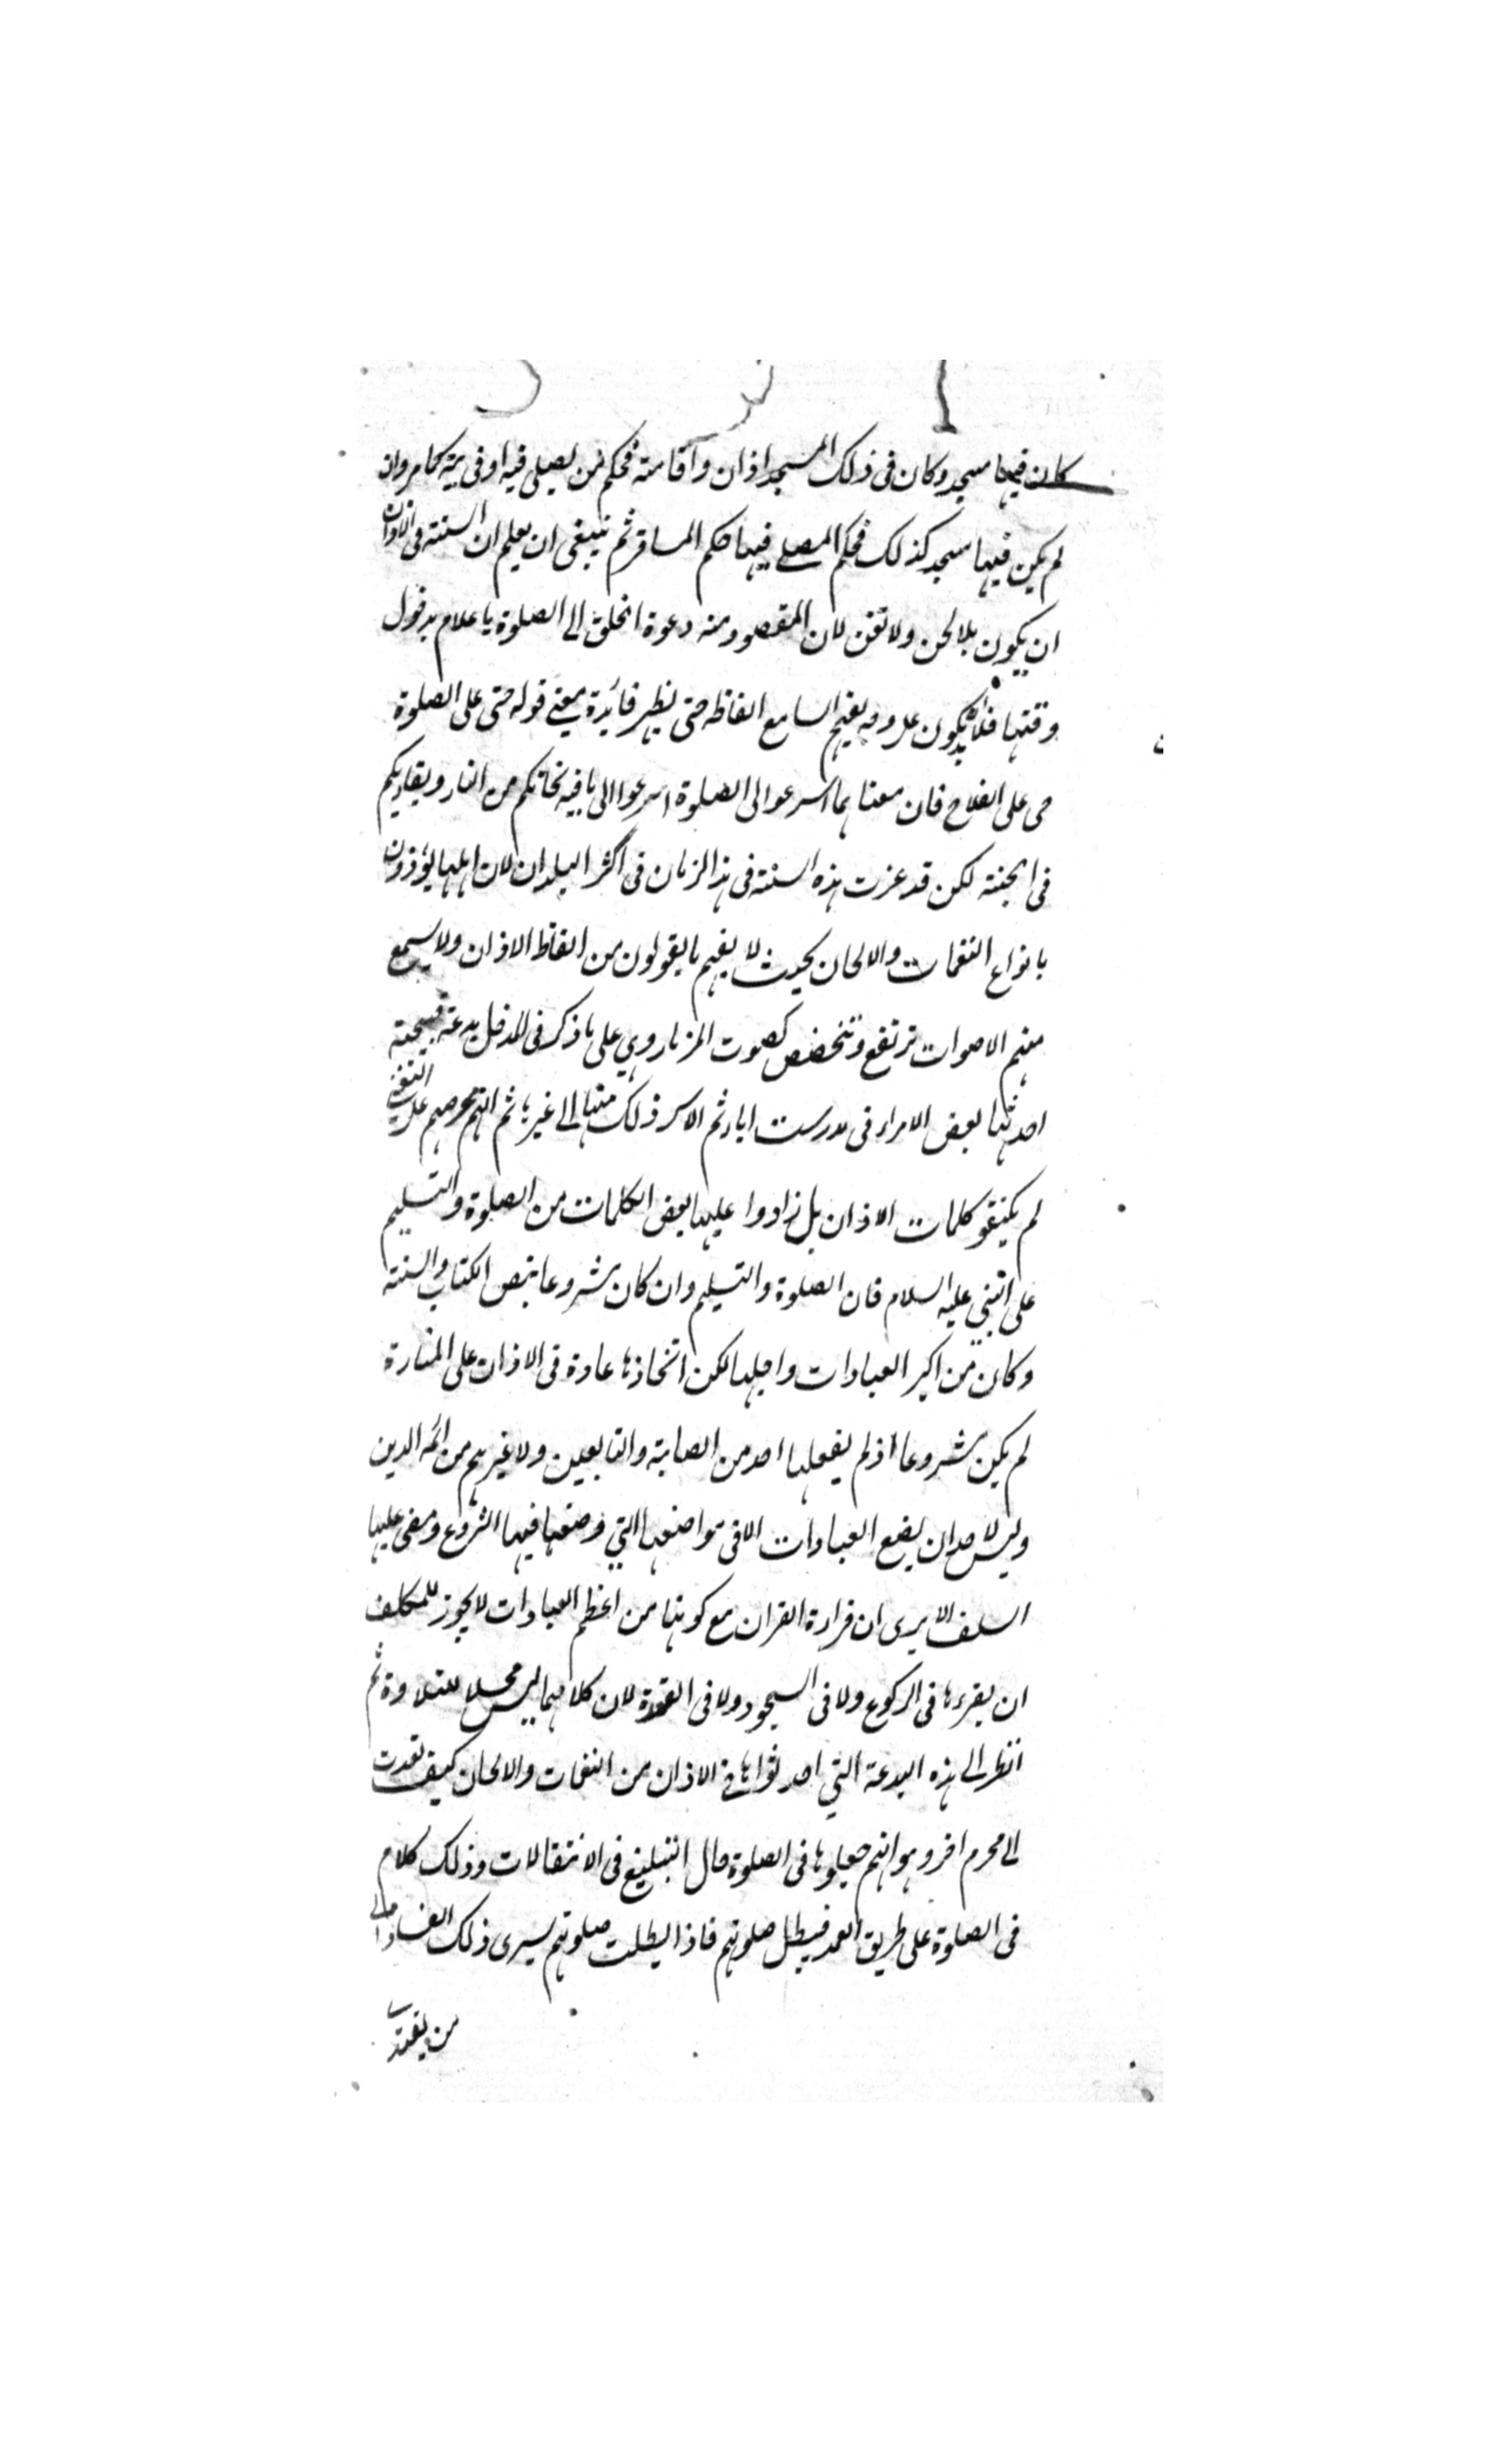 كان فيها مسجد وكان فى ذلك المسجد اذان واقامة فحكم من يصلى فيه او فى بيته كما مر وان
لم يكن فيها مسجد كذلك فحكم المصلى فيها حكم المسافر ثم ينبغى ان يعلم ان السنة فى الاذان
ان يكون بلا لحن ولا تغن لان المقصود منه دعوة الخلق الى الصلوة باعلام بدخول
وقتها فلا بد ان يكون على وجه يفهم السامع الفاظه حتى يظهر فائدة معنى قوله حى على الصلوة
حى على الفلاح فان معناهما اسرعوا الى الصلوة اسرعوا الى ما فيه نجاتكم من النار وبقاؤكم
فى الجنة لكن قد عزت هذه السنة فى هذا الزمان فى اكثر البلدان لان اهلها يؤذنون
بانواع النغمات والالحان بحيث لا يفهم ما يقولون من الفاظ الاذان ولا يسمع
منهم الاصوات ترتفع وتنخفض كصوت المزمار وهى على ما ذكر فى المدخل بدعة قبيحة
احدثها بعض الامراء فى مدرسة ثم ذلك منها الى غيرها ثم انهم لحرصهم على التغنى
لم يكتفو كلمات الاذان بل زادوا عليها بعض الكلمات من الصلوة والتسليم
على النبى عليه السلام فان الصلوة والتسليم وان كان مشروعا بنص الكتاب والسنة
وكان من اكبر العبادات واجلها لكن اتخاذها عادة فى الاذان على المنارة
لم يكن مشروعا اذ لم يفعلها احد من الصحابة والتابعين ولا غيرهم من ائمه الدين
وليس لاحد ان يضع العبادات الا فى مواضعها التي وضعها فيها الشرع ومضى عليها
السلف الا يرى ان قراءة القران مع كونها من اعظم العبادات لا يجوز للمكلف
ان يقرءها فى الركوع ولا فى السجود ولا فى القعدة لان كلا منهما ليس محلا للتلاوة ثم
انظر الى هذه البدعة التي احدثوها فى الاذان من النغمات والالحان كيف تعدت
الى محرم اخر وهو انهم جعلوها فى الصلوة حال التبليغ فى الانتقالات وذلك كلام
فى الصلوة على طريق العمد فيبطل صلوتهم فاذا بطلت صلوتهم يسرى ذلك الفساد الى
من يقتدى